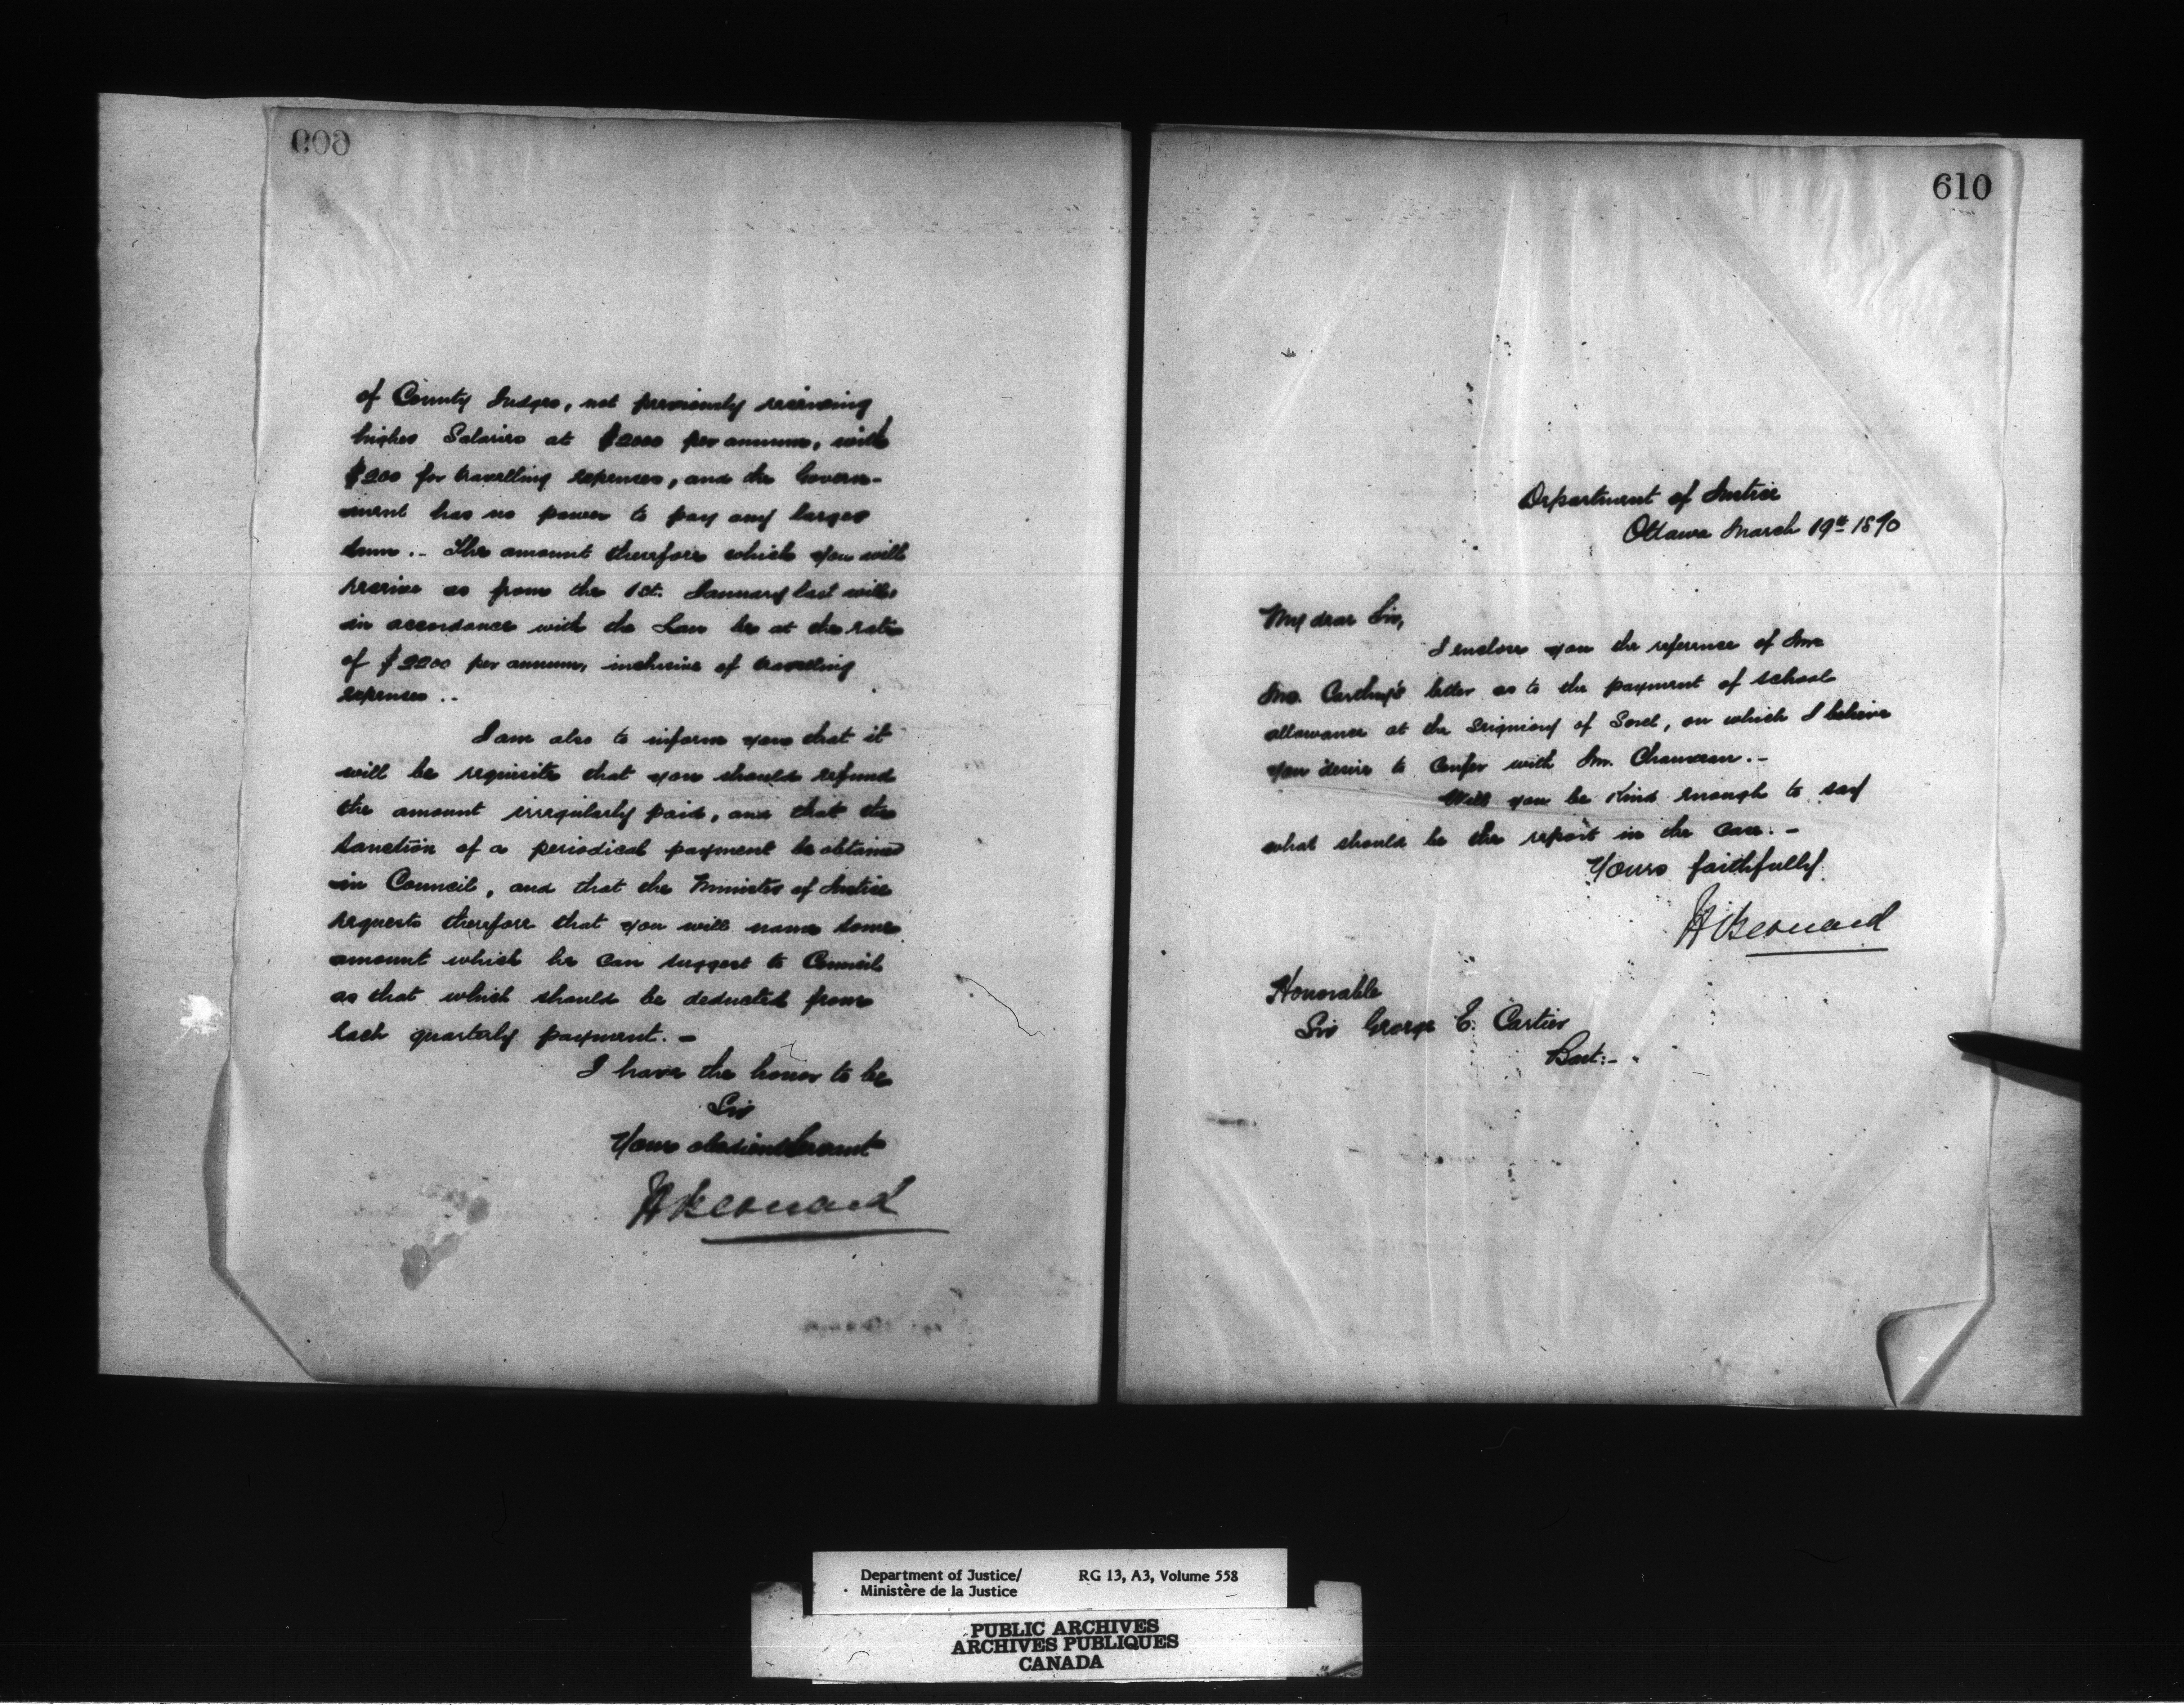 609
of County Judges, not previously receiving
higher Salaries at $2000 per annum, with
$200 for travelling expenses, and the Govern-
ment has no power to pay any larger
sum.. The amount therefore which you will
receive as from the 1st. January last will
in accordance with the Law be at the rate
of $2200 per annum, inclusive of travelling
expenses..
I am also to inform you that it
will be requisite that you should refund
the amount irregularly paid, and that the
sanction of a periodical payment be obtained
in Council, and that the Minister of Justice
requests therefore that you will name some
amount which he can suggest to Council
as that which should be deducted from
each quarterly payment. –
I have the honor to be
Sir
Your obedient Servant
H Bernard
610
Department of Justice
Ottawa March 19th 1870
My dear Sir,
I enclose you the reference of
Carthy's letter as to the payment of school
allowance at the Seigniory of Sorel, on which I believe
you desire to confer with Mr. Chauveau. –
Will you be kind enough to say
what should be the report in the case. –
Yours faithfully
H Bernard
Honorable
Sir George E. Cartier
Bart:–
Department of Justice/ RG 13, A3, Volume 558
Ministère de la Justice
PUBLIC ARCHIVES
ARCHIVES PUBLIQUES
CANADA